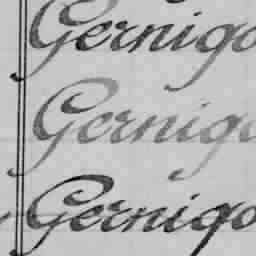 Gernigo
Gernigo
Gernigo